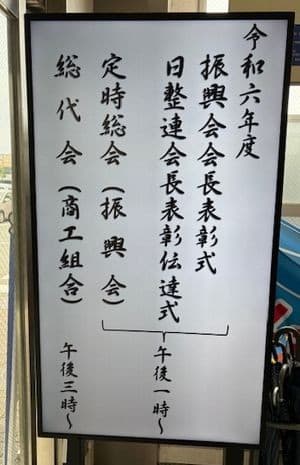 令和六年度
振興会会長表彰式
日整連会長表彰伝達式
定時総会（振興会）
午後一時～
総代会（商工組合）
午後三時～